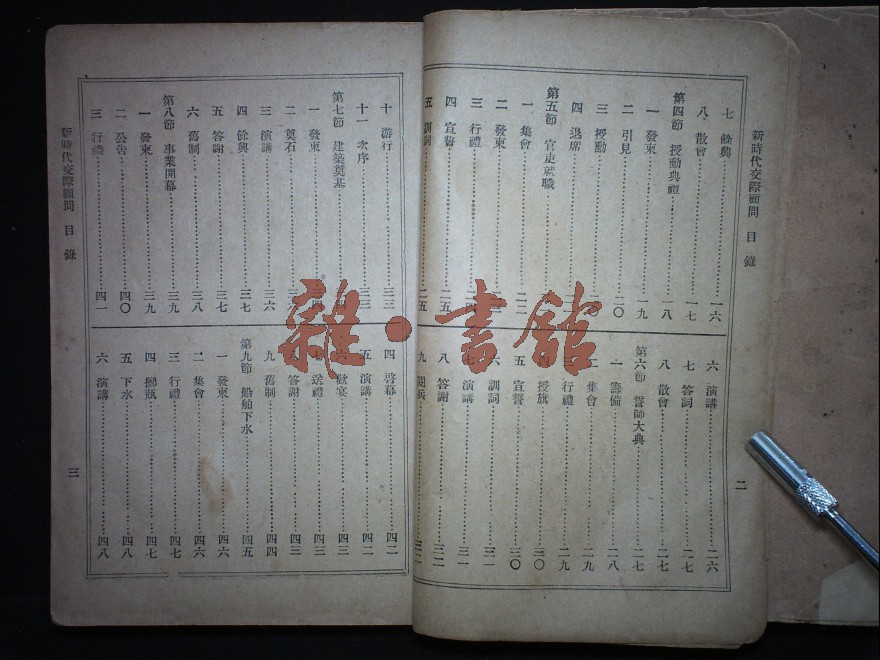 新時代交際顧問 目錄
七 餘興 一六
八 散會 一七
第四節 授勳典禮 一八
一 發柬 一九
二 引見 二〇
三 授勳
四 退席
第五節 官吏就職
一 集會 二二
二 發柬
三 行禮
四 宣誓 二五
五 訓詞 二五
六 演講 二六
七 答詞 二七
八 散會 二七
第六節 誓師大典 二七
一 籌備 二八
二 集會 二九
三 行禮 二九
四 授旗 三〇
五 宣誓 三〇
六 訓詞 三一
七 演講 三一
八 答謝 三二
九 閱兵
二
新時代交際顧問 目錄
十 游行 三三
十一 次序 三三
第七節 建築奠基
一 發柬
二 奠石
三 演講 三六
四 餘興 三七
五 答謝 三七
六 舊制 三八
第八節 事業開幕 三九
一 發柬 三九
二 公告 四〇
三 行禮 四一
四 啓幕 四二
五 演講 四二
六 歡宴 四三
七 送禮 四三
八 答謝 四三
九 舊制 四四
第九節 船舶下水 四五
一 發柬 四六
二 集會 四六
三 行禮 四七
四 擲瓶 四七
五 下水 四八
六 演講 四八
三
雜·書館